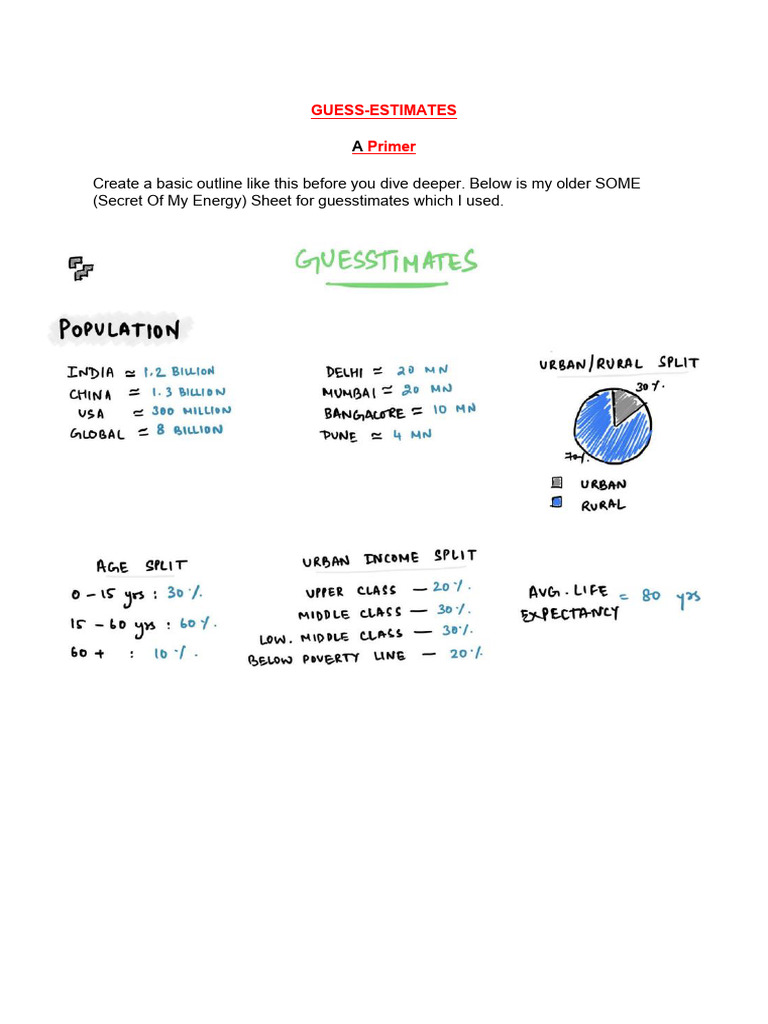 GUESS-ESTIMATES
A Primer
Create a basic outline like this before you dive deeper. Below is my older SOME
(Secret Of My Energy) Sheet for guesstimates which I used.
GUESSTIMATES
POPULATION
INDIA ≃ 1.2 BILLION
CHINA ≃ 1.3 BILLION
USA ≃ 300 MILLION
GLOBAL ≃ 8 BILLION
DELHI ≃ 20 MN
MUMBAI ≃ 20 MN
BANGALORE ≃ 10 MN
PUNE ≃ 4 MN
URBAN/RURAL SPLIT
30%.
70%.
URBAN
RURAL
AGE SPLIT
0 – 15 yrs : 30%.
15 – 60 yrs : 60%.
60 + : 10%.
URBAN INCOME SPLIT
UPPER CLASS — 20%.
MIDDLE CLASS — 30%.
LOW. MIDDLE CLASS — 30%.
BELOW POVERTY LINE — 20%.
AVG. LIFE
EXPECTANCY = 80 yrs